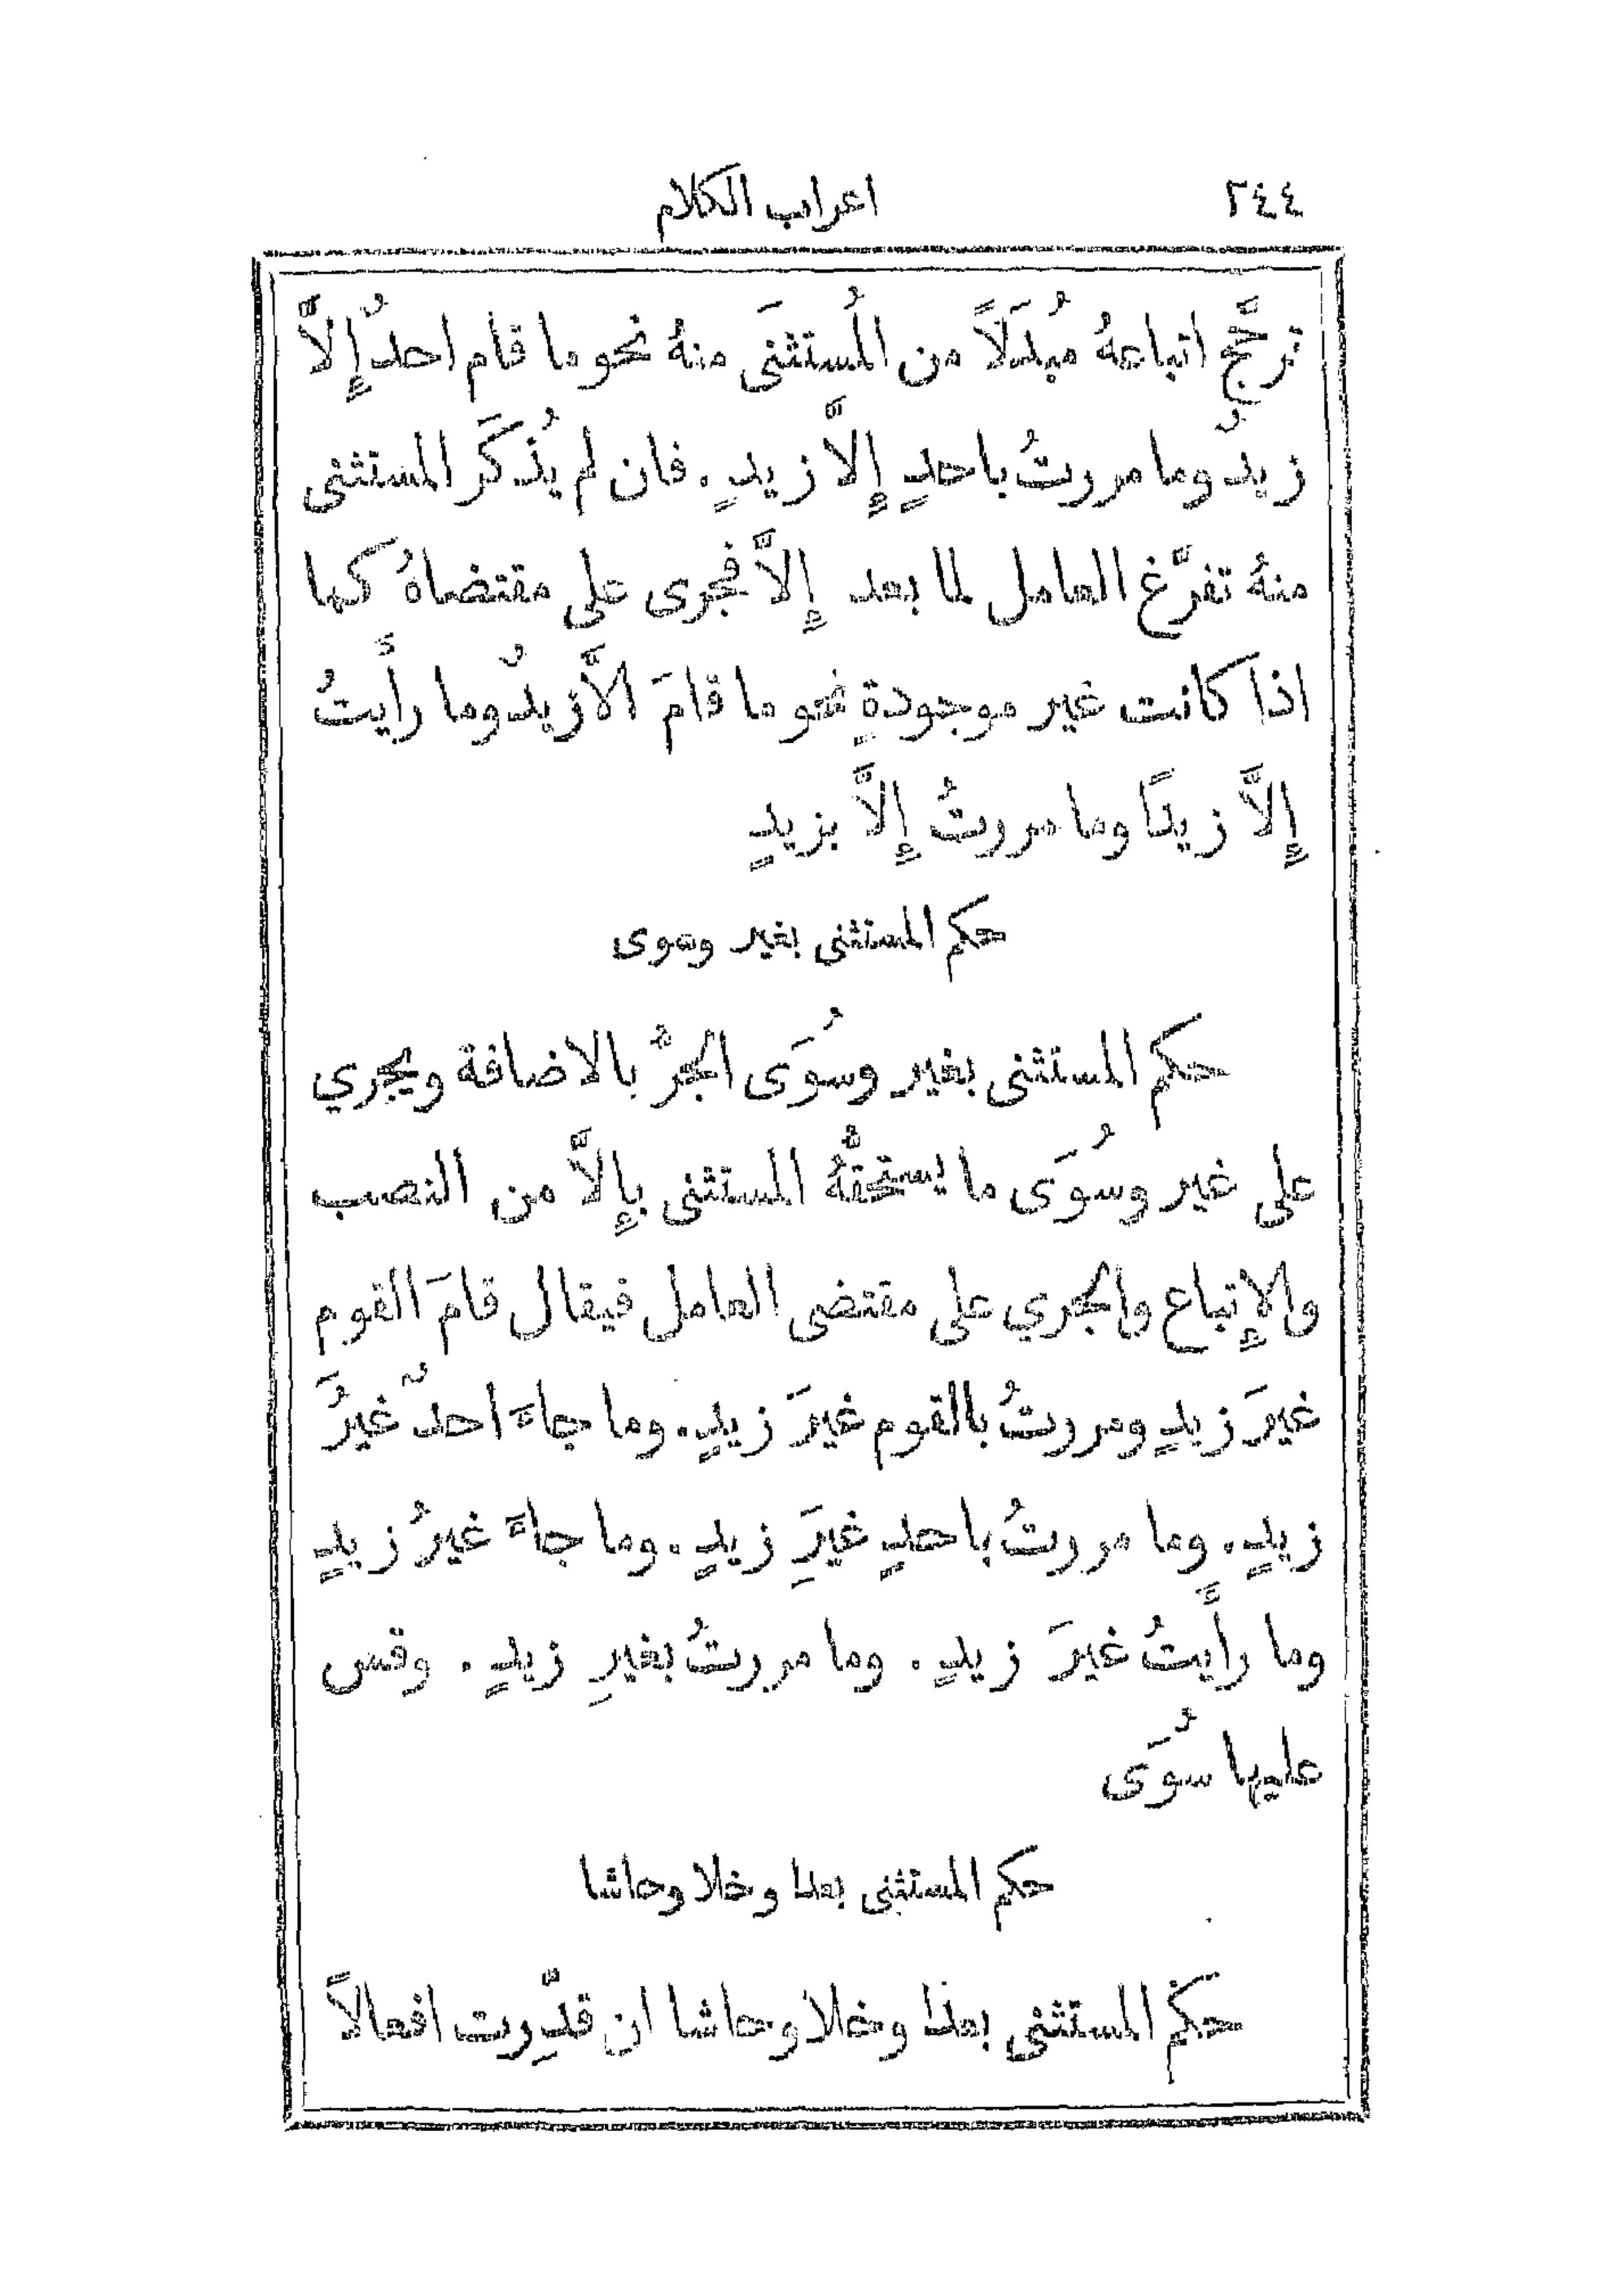 ٢٤٤
اعراب الكلام
ترجَّح اتباعهُ مُبدَلاً من المُستثنَى منهُ نحو ما قام احدٌ إِلاَّ
زيدٌ وما مررتُ باحدٍ إِلاَّ زيدٍ. فان لم يُذكَر المستثنى
منهُ تفرَّغ العامل لما بعد إِلاَّ فجرى على مقتضاهُ كما
اذا كانت غير موجودةٍ نحو ما قامَ الاَّ زيدٌ وما رأَيتُ
إِلاَّ زيدًا وما مررتُ إِلاَّ بزيدٍ
حكم المستثنى بغير وسوى
حكم المستثنى بغير وسُوَى الجرُّ بالاضافة ويجري
على غير وسُوَى ما يستحقُّهُ المستثنى بإِلاَّ من النصب
والإِتباع والجري على مقتضى العامل فيقال قامَ القوم
غيرَ زيدٍ ومررتُ بالقوم غيرَ زيدٍ. وما جاءَ احدٌ غيرَُ
زيدٍ. وما مررتُ باحدٍ غيرَِ زيدٍ. وما جاءَ غيرُ زيدٍ
وما رأَيتُ غيرَ زيدٍ. وما مررتُ بغيرِ زيدٍ. وقس
عليها سُوَى
حكم المستثنى بعدا وخلا وحاشا
حكم المستثنى بعدا وخلا وحاشا ان قدِّرت افعالاً